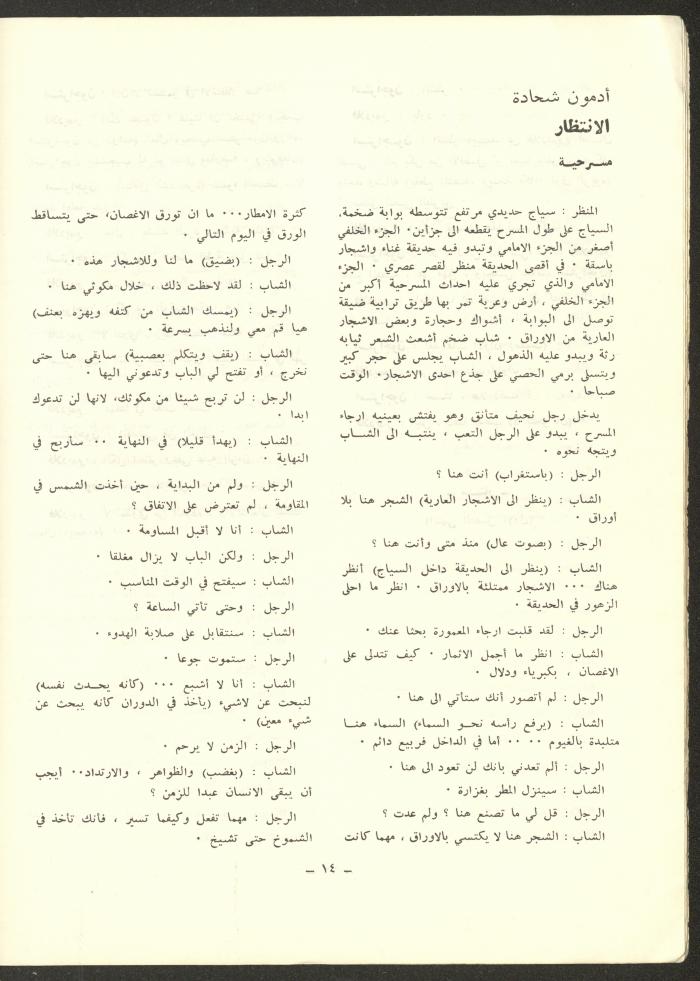 أدمون شحادة
الانتظار
مسرحية
المنظر : سياج حديدي مرتفع تتوسطه بوابة ضخمة.
السياج على طول المسرح يقطعه الى جزأين٠ الجزء الخلفي
أصغر من الجزء الامامي وتبدو فيه حديقة غناء واشجار
باسقة ٠ في أقصى الحديقة منظر لقصر عصري ٠ الجزء
الامامي والذي تجري عليه احداث المسرحية أكبر من
الجزء الخلفي ، أرض وعرية تمر بها طريق ترابية ضيقة
توصل الى البوابة ، أشواك وحجارة وبعض الاشجار
العارية من الاوراق ٠ شاب ضخم أشعث الشعر ثيابه
رثة ويبدو عليه الذهول ، الشاب يجلس على حجر كبير
ويتسلى برمي الحصي على جذع احدى الاشجار٠ الوقت
صباحا ٠
يدخل رجل نحيف متأنق وهو يفتش بعينيه ارجاء
المسرح ، يبدو على الرجل التعب ، ينتبه الى الشاب
ويتجه نحوه ٠
الرجل : (باستغراب) أنت هنا ؟
الشاب : (ينظر الى الاشجار العارية) الشجر هنا بلا
أوراق ٠
الرجل : (بصوت عال) منذ متى وأنت هنا ؟
الشاب : (ينظر الى الحديقة داخل السياج) أنظر
هناك ٠٠٠ الاشجار ممتلئة بالاوراق ٠ انظر ما احلى
الزهور في الحديقة ٠
الرجل : لقد قلبت ارجاء المعمورة بحثا عنك ٠
الشاب : انظر ما أجمل الاثمار ٠ كيف تتدلى على
الاغصان ، بكبرياء ودلال ٠
الرجل : لم أتصور أنك ستأتي الى هنا ٠
الشاب : (يرفع رأسه نحو السماء) السماء هنا
متلبدة بالغيوم ٠٠ ٠٠ أما في الداخل فربيع دائم ٠
الرجل : ألم تعدني بانك لن تعود الى هنا ٠
الشاب : سينزل المطر بغزارة ٠
الرجل : قل لي ما تصنع هنا ؟ ولم عدت ؟
الشاب : الشجر هنا لا يكتسي بالاوراق ، مهما كانت
كثرة الامطار٠٠٠ ما ان تورق الاغصان، حتى يتساقط
الورق في اليوم التالي ٠
الرجل : (بضيق) ما لنا وللاشجار هذه ٠
الشاب : لقد لاحظت ذلك ، خلال مكوثي هنا ٠
الرجل : (يمسك الشاب من كتفه ويهزه بعنف)
هيا قم معي ولنذهب بسرعة ٠
الشاب : (يقف ويتكلم بعصبية) سابقى هنا حتى
تخرج ، أو تفتح لي الباب وتدعوني اليها ٠
الرجل : لن تربح شيئا من مكوثك، لانها لن تدعوك
ابدا ٠
الشاب : (يهدأ قليلا) في النهاية ٠٠ سأربح في
النهاية ٠
الرجل : ولم من البداية ، حين أخذت الشمس في
المقاومة ، لم تعترض على الاتفاق ؟
الشاب : أنا لا أقبل المساومة ٠
الرجل : ولكن الباب لا يزال مغلقا ٠
الشاب : سيفتح في الوقت المناسب ٠
الرجل : وحتى تأتي الساعة ؟
الشاب : سنتقابل على صلابة الهدوء ٠
الرجل : ستموت جوعا ٠
الشاب : أنا لا أشبع ٠٠٠ (كأنه يحدث نفسه)
لنبحث عن لاشيء (يأخذ في الدوران كأنه يبحث عن
شيء معين) ٠
الرجل : الزمن لا يرحم ٠
الشاب : (بغضب) والظواهر ، والارتداد٠٠ أيجب
أن يبقى الانسان عبدا للزمن ؟
الرجل : مهما تفعل وكيفما تسير ، فأنك تأخذ في
الشموخ حتى تشيخ ٠
– ١٤ –